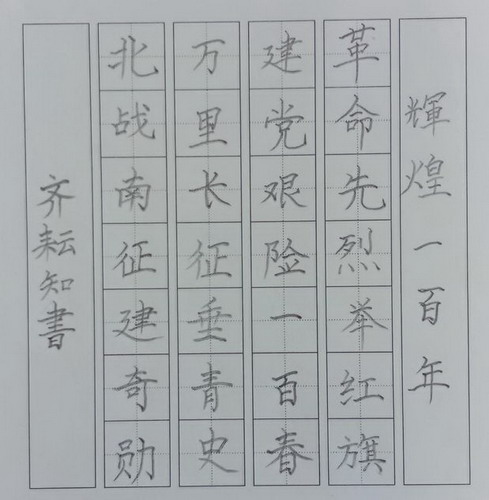 輝煌一百年
革命先烈举红旗
建党艰险一百春
万里长征垂青史
北战南征建奇勋
齐耘知書